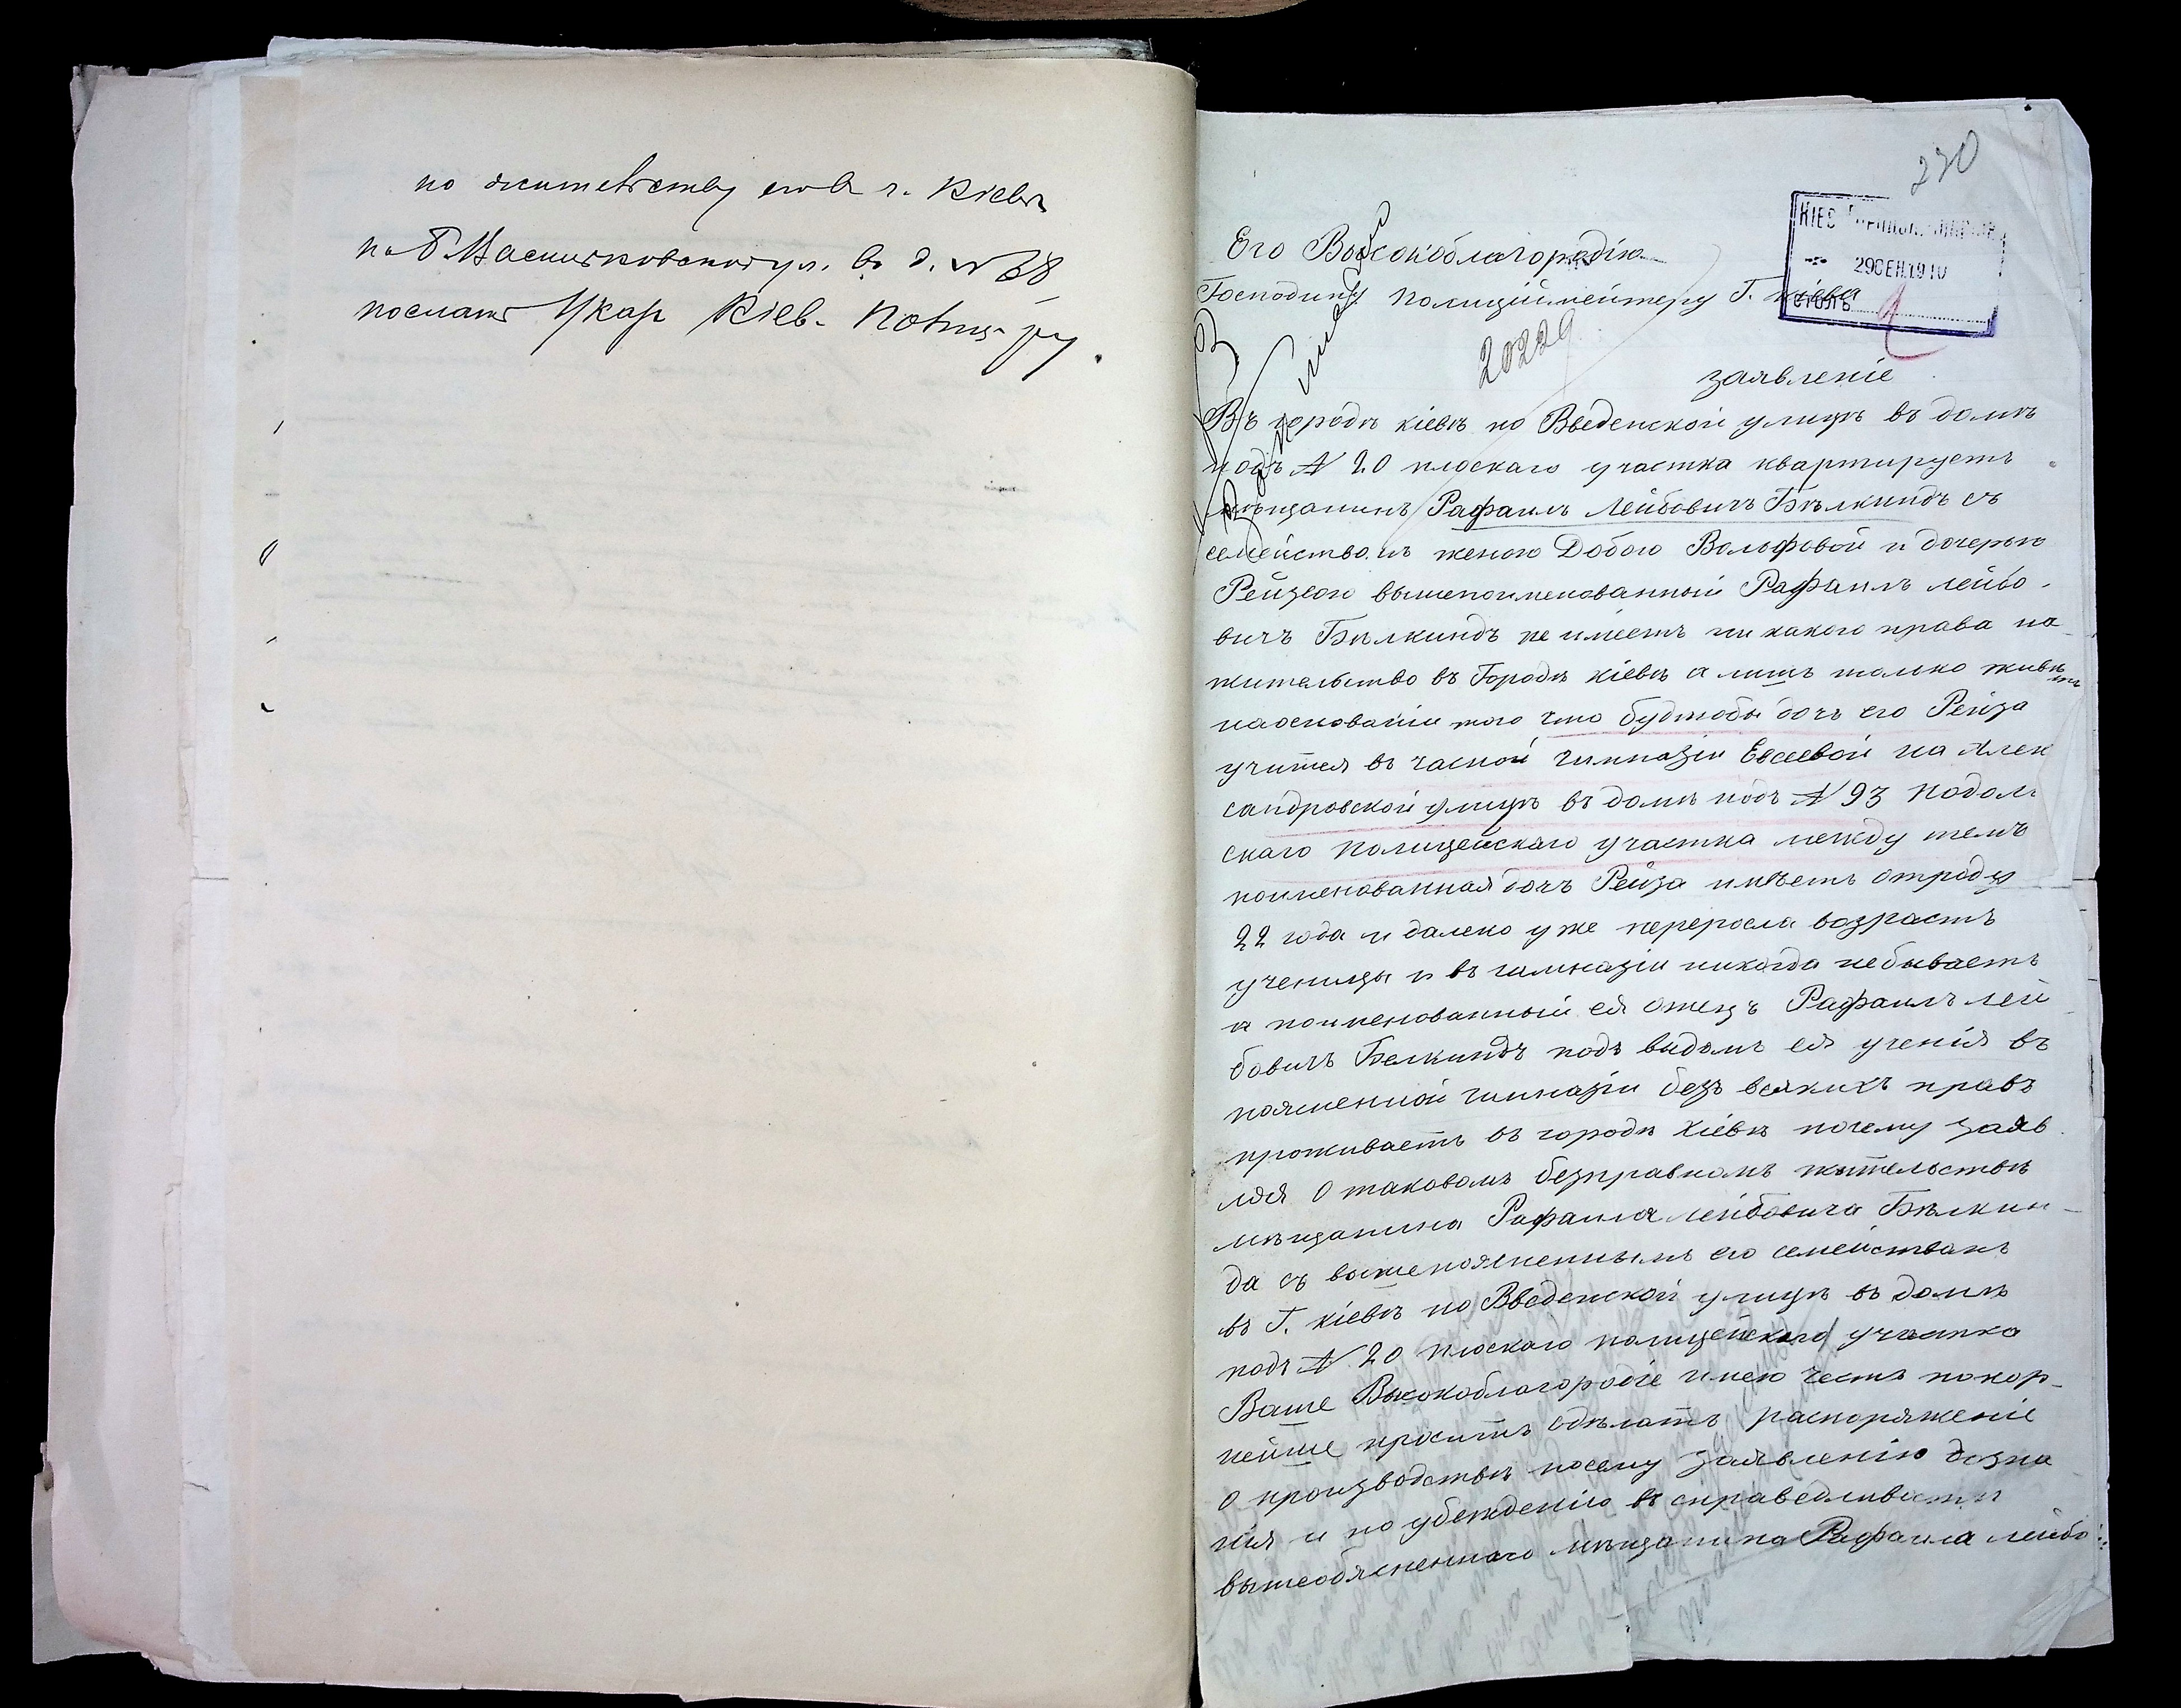 по жительству его в г. Кіевъ
по Б. Васильковской ул. въ д. № 38
послать Кіев.
230
29 СЕН 1910
столъ
Его Высокоблагородію
Господину Полиціймейстеру Г. Кіева
20229
заявленіе
Въ городѣ кіевѣ по Введенской улицѣ въ домѣ
подъ № 20 плоскаго участка квартируетъ
мѣщанинъ Рафаилъ Лейбовичъ Бѣлкиндъ съ
семействомъ женою Добою Вольфовой и дочерью
Рейзею вышепоименованный Рафаилъ лейбо-
вичъ Бѣлкиндъ не имеетъ ни какого права на
жительство въ Городѣ кіевѣ а лишъ только живетъ
наоснованіи того что будтобы дочъ его Рейза
учится въ часной гимназіи Евсеевой на Алек
сандровской улицѣ въ домѣ подъ № 93 подоль
скаго полицейскаго участка между темъ
поименованная дочъ Рейза имѣетъ отроду
22 года и далеко уже переросла возрастъ
ученицы и въ гимназіи никогда небываетъ
а поименованный ея отецъ Рафаилъ лей
бовичъ Белкиндъ подъ видомъ ея ученія въ
поясненной гимназіи безъ всякихъ правъ
проживаетъ въ городѣ кіевѣ почему заяв
ляя О таковомъ безправномъ жительствѣ
мѣщанина Рафаила лейбовича Бѣлкин-
да съ вышепоясненнымъ его семействамъ
въ Г. кіевѣ по Введенской улицѣ въ домѣ
подъ № 20 плоскаго полицейскаго участка
Ваше Высокоблагородіе имею честь покор-
нейше просить сдѣлать распоряженіе
О производствѣ посему заявленію дозна
нія и по убежденію въ справедливости
вышеобясненнаго мѣщанина Рафаила лейбо